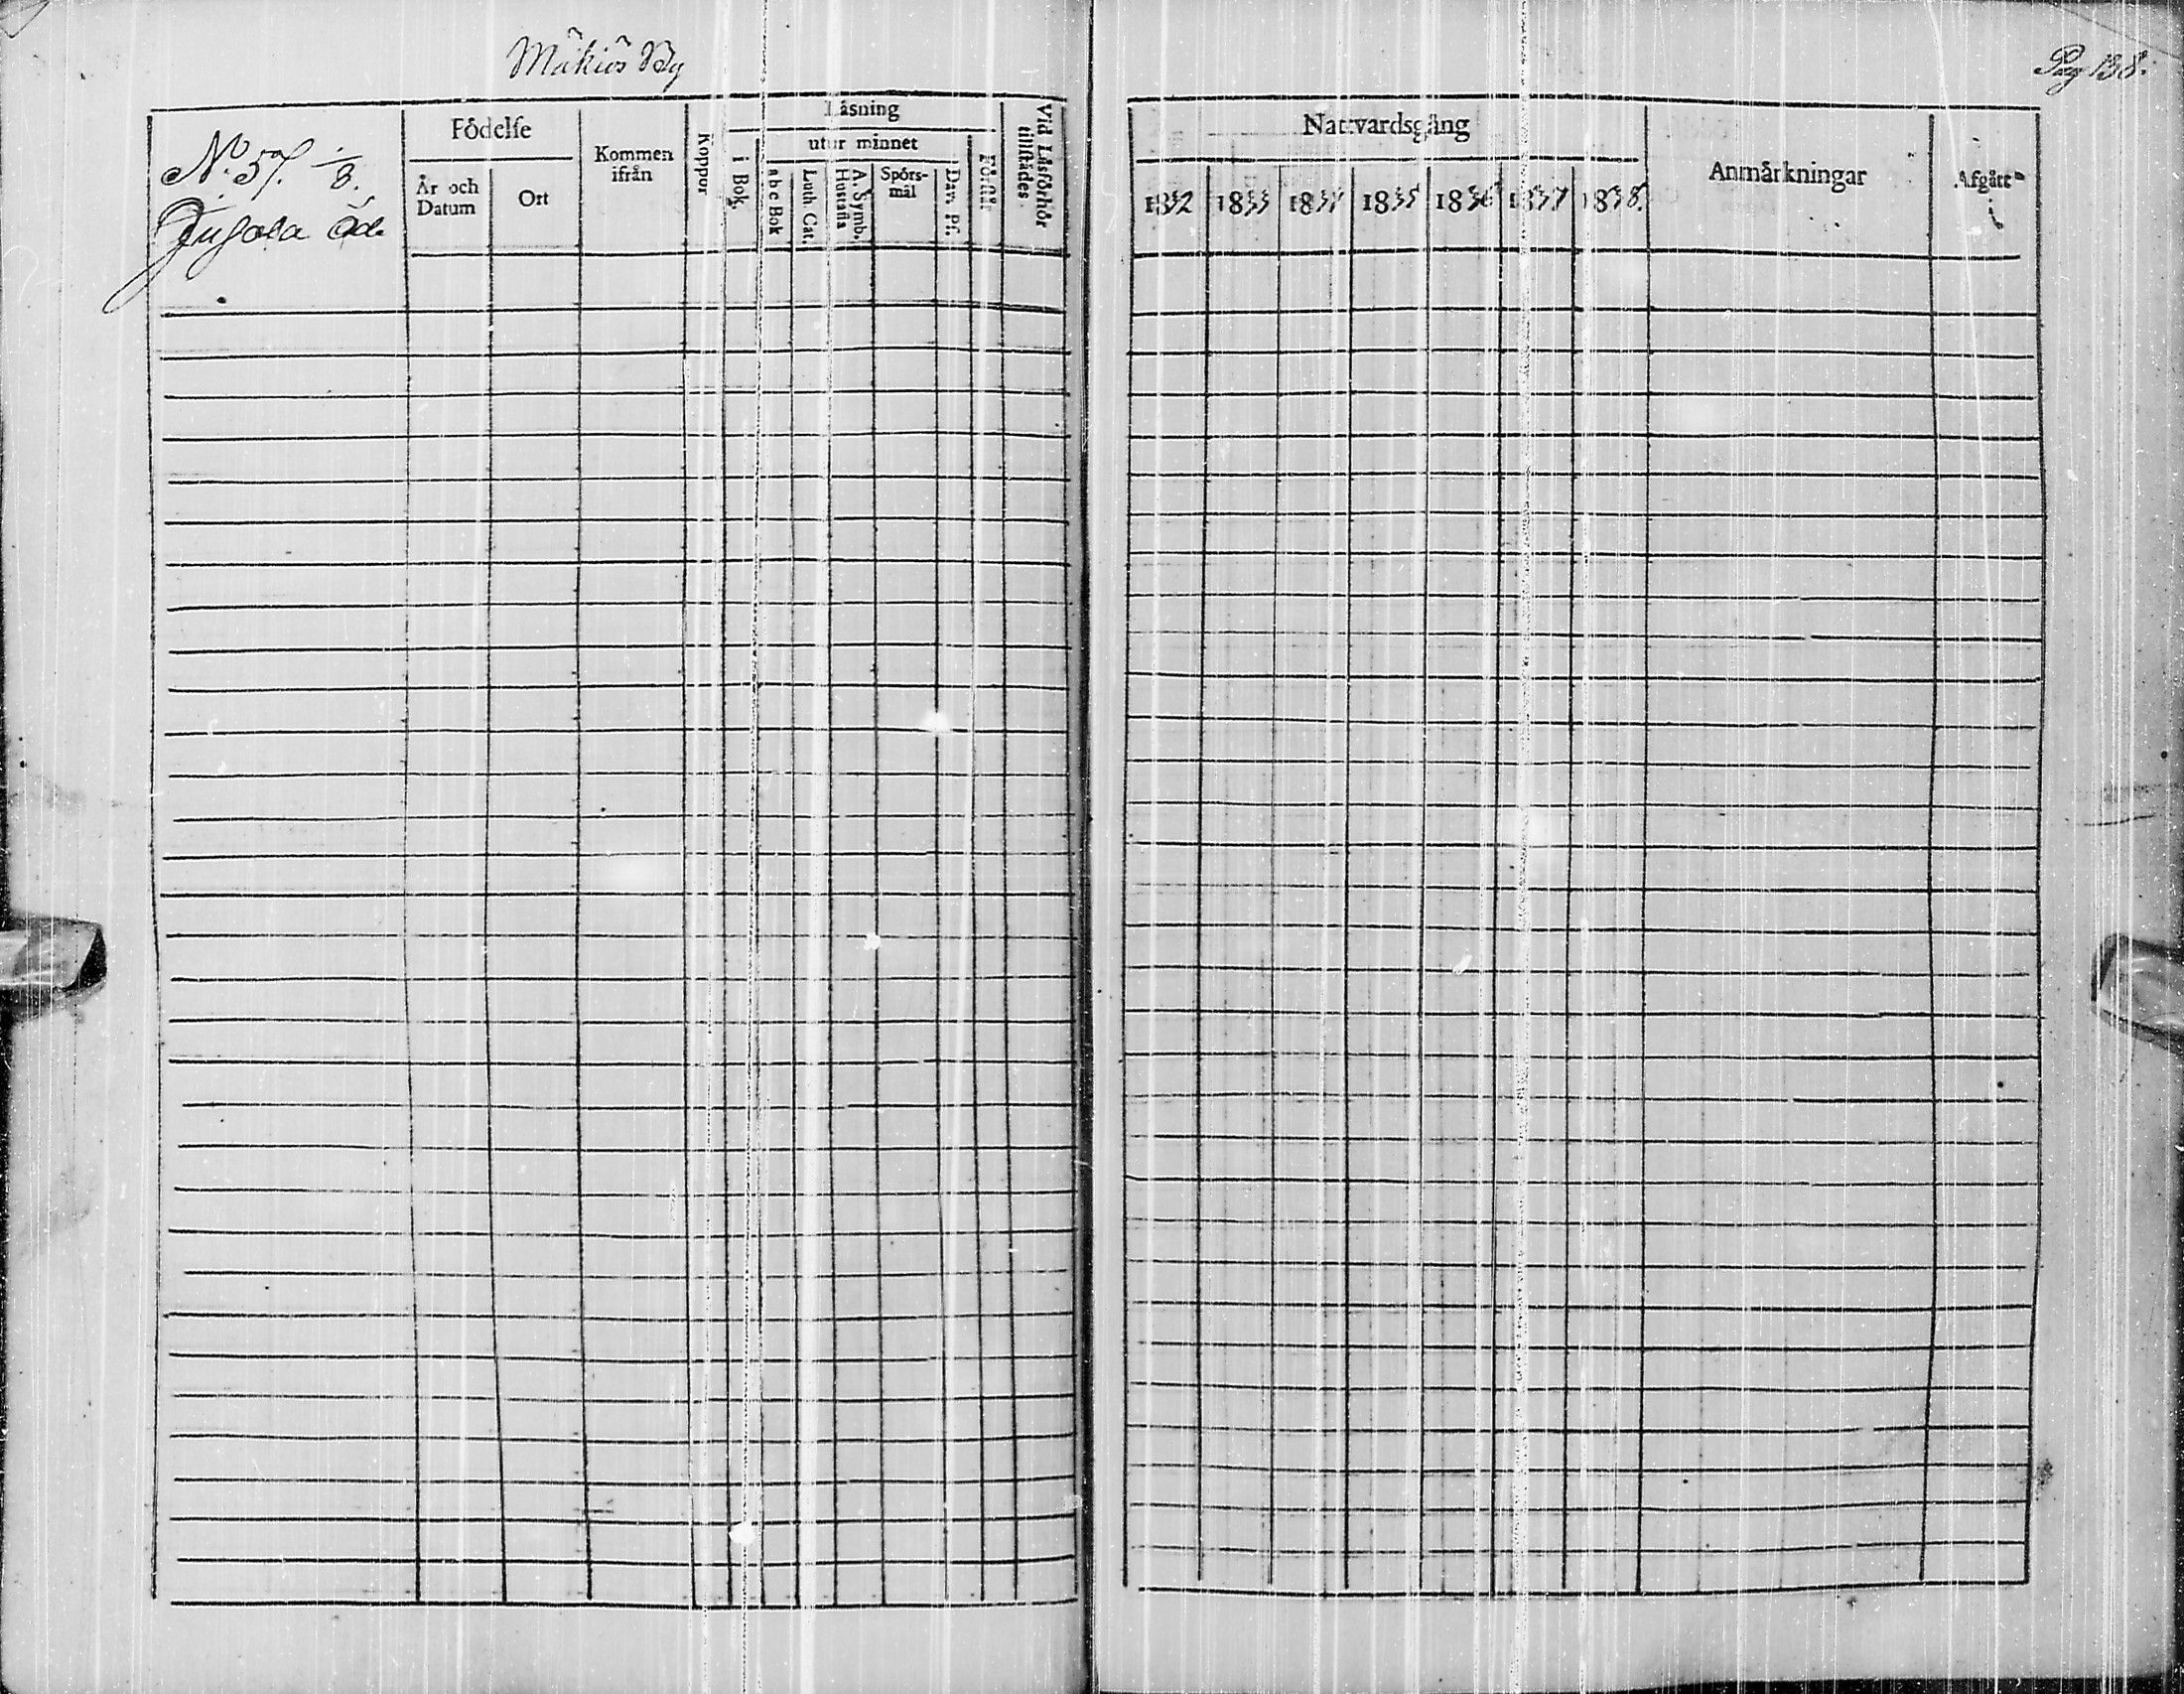 Mäkiös By
Pag 138.
N:o 57. 1/8.
Jugala Öde
Födelse
År och Datum
Ort
Kommen ifrån
Koppor
Läsning
i Bok.
utur minnet
a b c Bok
Luth. Cat.
A. Symb. Hustafla
Spörs-
mål
Dav. Ps.
Förstår
Vid Läsförhör tillstädes
Nattvardsgång
1832 1833 1834 1835 1836 1837 1838.
Anmärkningar
Afgått